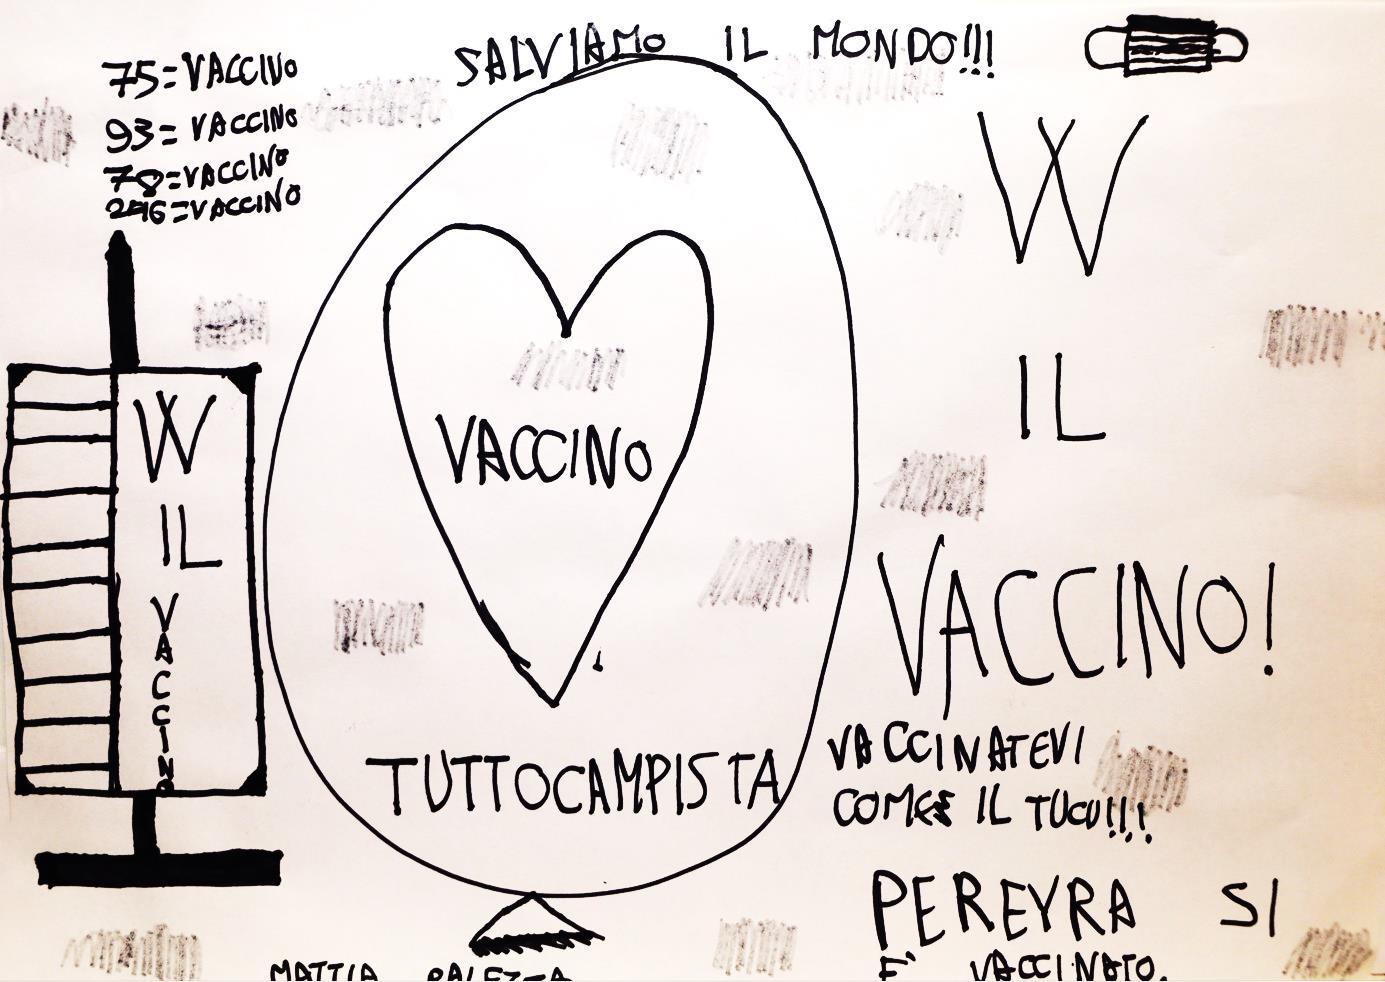 SALVIAMO IL MONDO!!!
75=VACCINO
93=VACCINO
78=VACCINO
=VACCINO
W
IL
VACCINO
VACCINO
TUTTOCAMPISTA
W
IL
VACCINO!
VACCINATEVI
COME IL TUCU!!!
PEREYRA SI
E' VACCINATO.
MATTIA